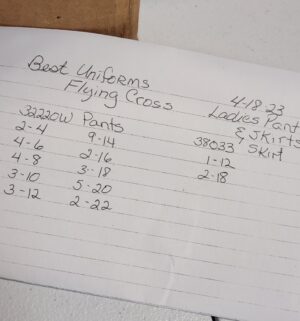 Best Uniforms
Flying Cross
4-18-23
Ladies Pant
& Skirts
32220W Pants
2-4
4-6
4-8
3-10
3-12
9-14
2-16
3-18
5-20
2-22
38033 Skirt
1-12
2-18